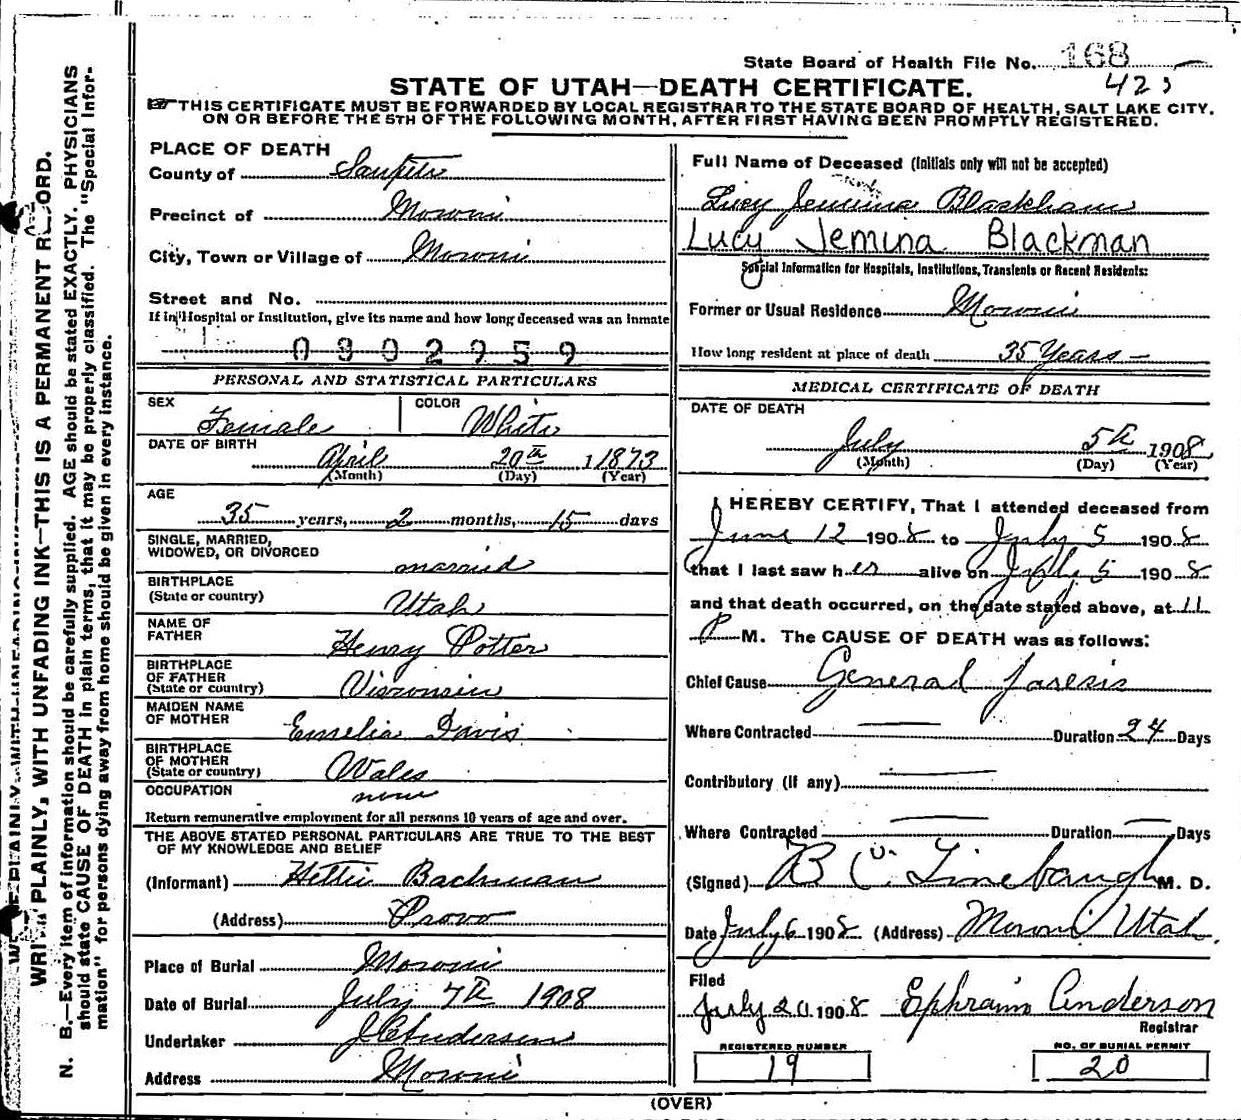 State Board of Health File No. 168
STATE OF UTAH—DEATH CERTIFICATE. 425
THIS CERTIFICATE MUST BE FORWARDED BY LOCAL REGISTRAR TO THE STATE BOARD OF HEALTH, SALT LAKE CITY,
ON OR BEFORE THE 5TH OF THE FOLLOWING MONTH, AFTER FIRST HAVING BEEN PROMPTLY REGISTERED.
PLACE OF DEATH
County of Sanpete
Precinct of Moroni
City, Town or Village of Moroni
Street and No.
If in Hospital or Institution, give its name and how long deceased was an inmate
0302959
PERSONAL AND STATISTICAL PARTICULARS
SEX Female COLOR White
DATE OF BIRTH
April 20th 1873
(Month) (Day) (Year)
AGE
35 years, 2 months, 15 days
SINGLE, MARRIED,
WIDOWED, OR DIVORCED married
BIRTHPLACE
(State or country) Utah
NAME OF
FATHER Henry Potter
BIRTHPLACE
OF FATHER
(State or country) Visconsin
MAIDEN NAME
OF MOTHER Emelia Davis
BIRTHPLACE
OF MOTHER
(State or country) Wales
OCCUPATION none
Return remunerative employment for all persons 10 years of age and over.
THE ABOVE STATED PERSONAL PARTICULARS ARE TRUE TO THE BEST
OF MY KNOWLEDGE AND BELIEF
(Informant) Hettie Bachman
(Address) Provo
Place of Burial Moroni
Date of Burial July 7th 1908
Undertaker J C Anderson
Address Moroni
Full Name of Deceased (Initials only will not be accepted)
Lucy Jemima Blackham
Lucy Jemina Blackman
Special Information for Hospitals, Institutions, Transients or Recent Residents:
Former or Usual Residence Moroni
How long resident at place of death 35 Years —
MEDICAL CERTIFICATE OF DEATH
DATE OF DEATH
July 5th 1908
(Month) (Day) (Year)
I HEREBY CERTIFY, That I attended deceased from
June 12 1908 to July 5 1908
that I last saw her alive on July 5 1908
and that death occurred, on the date stated above, at 11
P M. The CAUSE OF DEATH was as follows:
Chief Cause General Paresis
Where Contracted — Duration 24 Days
Contributory (if any) —
Where Contracted — Duration — Days
(Signed) B C Linebaugh M. D.
Date July 6 1908 (Address) Moroni Utah.
Filed
July 20 1908 Ephraim Anderson
Registrar
REGISTERED NUMBER NO. OF BURIAL PERMIT
19 20
(OVER)
WRITE PLAINLY, WITH UNFADING INK—THIS IS A PERMANENT RECORD.
N. B.—Every item of information should be carefully supplied. AGE should be stated EXACTLY. PHYSICIANS
should state CAUSE OF DEATH in plain terms, that it may be properly classified. The "Special Infor-
mation" for persons dying away from home should be given in every instance.